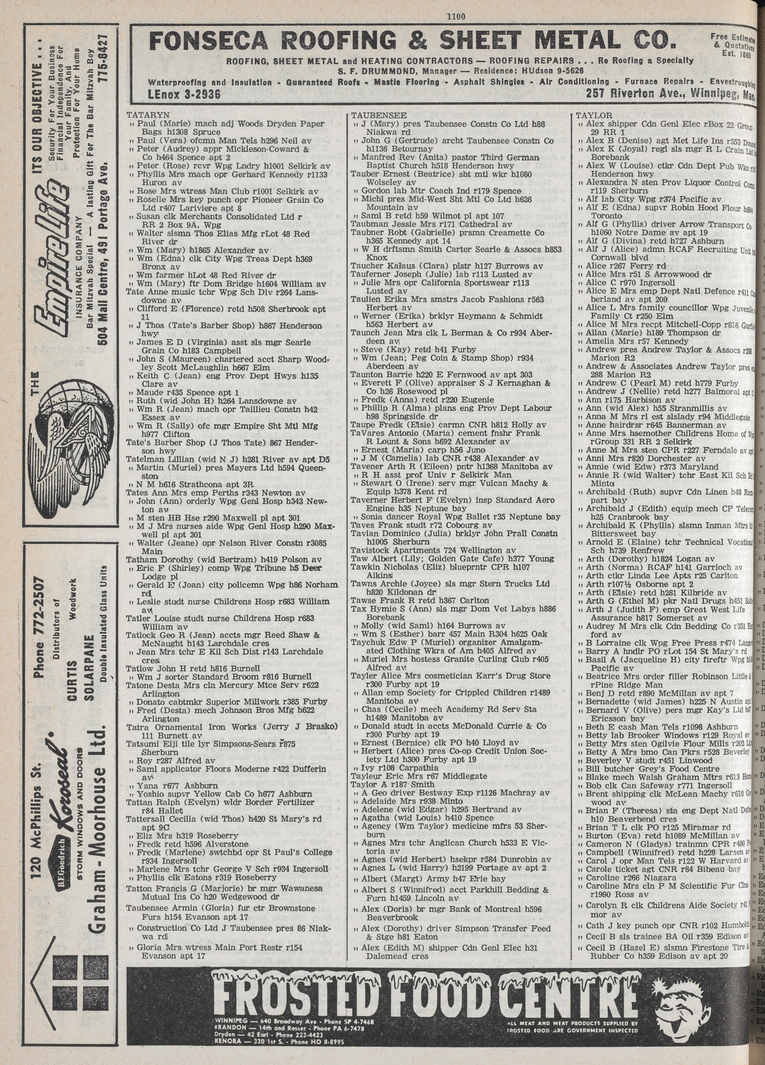 1100
FONSECA ROOFING & SHEET METAL CO.
Free Estimat
& Quotations
Est. 1860
ROOFING, SHEET METAL and HEATING CONTRACTORS — ROOFING REPAIRS . . . Re Roofing a Specialty
S. F. DRUMMOND, Manager — Residence: HUdson 9-5626
Waterproofing and Insulation - Guaranteed Roofs - Mastic Flooring - Asphalt Shingles - Air Conditioning - Furnace Repairs - Eavestroughing
LEnox 3-2936
257 Riverton Ave., Winnipeg, Man.
THE
Empire Life
INSURANCE COMPANY
IT'S OUR OBJECTIVE . . .
Security For Your Business
Financial Independence For
Your Family, And
Protection For Your Home
Bar Mitzvah Special — A lasting Gift For The Bar Mitzvah Boy
504 Mall Centre, 491 Portage Ave.
775-8427
120 McPhillips St.
Phone 772-2507
B.F.Goodrich Koroseal
STORM WINDOWS AND DOORS
Distributors of
CURTIS Woodwork
SOLARPANE
Double Insulated Glass Units
Graham - Moorhouse Ltd.
TATARYN
" Paul (Marie) mach adj Woods Dryden Paper
Bags h1308 Spruce
" Paul (Vera) ofcmn Man Tels h296 Neil av
" Peter (Audrey) appr Mickleson-Coward &
Co h464 Spence apt 2
" Peter (Rose) rcvr Wpg Lndry h1001 Selkirk av
" Phyllis Mrs mach opr Gerhard Kennedy r1133
Huron av
" Rose Mrs wtress Man Club r1001 Selkirk av
" Roselle Mrs key punch opr Pioneer Grain Co
Ltd r407 Lariviere apt 8
" Susan clk Merchants Consolidated Ltd r
RR 2 Box 9A. Wpg
" Walter slsmn Thos Elias Mfg rLot 48 Red
River dr
" Wm (Mary) h1865 Alexander av
" Wm (Edna) clk City Wpg Treas Dept h369
Bronx av
" Wm farmer hLot 48 Red River dr
" Wm (Mary) ftr Dom Bridge h1604 William av
Tate Anne music tchr Wpg Sch Div r264 Lans-
downe av
" Clifford E (Florence) retd h508 Sherbrook apt
11
" J Thos (Tate's Barber Shop) h867 Henderson
hwy
" James E D (Virginia) asst sls mgr Searle
Grain Co h183 Campbell
" John S (Maureen) chartered acct Sharp Wood-
ley Scott McLaughlin h667 Elm
" Keith C (Jean) eng Prov Dept Hwys h135
Clare av
" Maude r435 Spence apt 1
" Ruth (wid John H) h264 Lansdowne av
" Wm R (Jean) mach opr Taillieu Constn h42
Essex av
" Wm R (Sally) ofc mgr Empire Sht Mtl Mfg
h977 Clifton
Tate's Barber Shop (J Thos Tate) 867 Hender-
son hwy
Tatelman Lillian (wid N J) h281 River av apt D5
" Martin (Muriel) pres Mayers Ltd h594 Queen-
ston
" N M b616 Strathcona apt 3R
Tates Ann Mrs emp Perths r343 Newton av
" John (Ann) orderly Wpg Genl Hosp h343 New-
ton av
" M sten HB Hse r290 Maxwell pl apt 301
" M J Mrs nurses aide Wpg Genl Hosp h290 Max-
well pl apt 301
" Walter (Jeane) opr Nelson River Constn r3085
Main
Tatham Dorothy (wid Bertram) h219 Polson av
" Eric F (Shirley) comp Wpg Tribune h5 Deer
Lodge pl
" Gerald E (Joan) city policemn Wpg h86 Norham
rd
" Leslie studt nurse Childrens Hosp r683 William
av
Tatler Louise studt nurse Childrens Hosp r683
William av
Tatlock Geo R (Jean) accts mgr Reed Shaw &
McNaught h143 Larchdale cres
" Jean Mrs tchr E Kil Sch Dist r143 Larchdale
cres
Tatlow John H retd h816 Burnell
" Wm J sorter Standard Broom r816 Burnell
Tatone Desta Mrs cln Mercury Mtce Serv r622
Arlington
" Donato cabtmkr Superior Millwork r385 Furby
" Fred (Desta) mech Johnson Bros Mfg h622
Arlington
Tatra Ornamental Iron Works (Jerry J Brasko)
111 Burnett av
Tatsumi Eiji tile lyr Simpsons-Sears F875
Sherburn
" Roy r287 Alfred av
" Saml applicator Floors Moderne r422 Dufferin
av
" Yana r677 Ashburn
" Yoshio supvr Yellow Cab Co h677 Ashburn
Tattan Ralph (Evelyn) wldr Border Fertilizer
r84 Hallet
Tattersall Cecilia (wid Thos) h420 St Mary's rd
apt 9C
" Eliz Mrs h319 Roseberry
" Fredk retd h596 Alverstone
" Fredk (Marlene) swtchbd opr St Paul's College
r934 Ingersoll
" Marlene Mrs tchr George V Sch r934 Ingersoll
" Phyllis clk Eatons r319 Roseberry
Tatton Francis G (Marjorie) br mgr Wawanesa
Mutual Ins Co h20 Wedgewood dr
Taubensee Armin (Gloria) fur ctr Brownstone
Furs h154 Evanson apt 17
" Construction Co Ltd J Taubensee pres 86 Niak-
wa rd
" Gloria Mrs wtress Main Port Restr r154
Evanson apt 17
TAUBENSEE
" J (Mary) pres Taubensee Constn Co Ltd h86
Niakwa rd
" John G (Gertrude) archt Taubensee Constn Co
h1136 Betournay
" Manfred Rev (Anita) pastor Third German
Baptist Church h518 Henderson hwy
Tauber Ernest (Beatrice) sht mtl wkr h1080
Wolseley av
" Gordon lab Mtr Coach Ind r179 Spence
" Michl pres Mid-West Sht Mtl Co Ltd h626
Mountain av
" Saml B retd h59 Wilmot pl apt 107
Taubman Jessie Mrs r171 Cathedral av
Taubner Robt (Gabrielle) prsmn Creamette Co
h365 Kennedy apt 14
" W H drftsmn Smith Carter Searle & Assocs h853
Knox
Taucher Kalaus (Clara) plstr h127 Burrows av
Tauferner Joseph (Julie) lab r113 Lusted av
" Julie Mrs opr California Sportswear r113
Lusted av
Taulien Erika Mrs smstrs Jacob Fashions r563
Herbert av
" Werner (Erika) brklyr Heymann & Schmidt
h563 Herbert av
Taunch Jean Mrs clk L Berman & Co r934 Aber-
deen av
" Steve (Kay) retd b41 Furby
" Wm (Jean; Peg Coin & Stamp Shop) r934
Aberdeen av
Taunton Barrie h220 E Fernwood av apt 303
" Everett F (Olive) appraiser S J Kernaghan &
Co h26 Rosewood pl
" Fredk (Anna) retd r220 Eugenie
" Phillip R (Alma) plans eng Prov Dept Labour
h98 Springside dr
Taupe Fredk (Elsie) carmn CNR h812 Holly av
TaVares Antonio (Maria) cement fnshr Frank
R Lount & Sons h692 Alexander av
" Ernest (Maria) carp h56 Juno
" J M (Camelia) lab CNR r438 Alexander av
Tavener Arth R (Eileen) pntr h1368 Manitoba av
" R H asst prof Univ r Selkirk Man
" Stewart O (Irene) serv mgr Vulcan Machy &
Equip h378 Kent rd
Taverner Herbert F (Evelyn) insp Standard Aero
Engine h35 Neptune bay
" Sonia dancer Royal Wpg Ballet r35 Neptune bay
Taves Frank studt r72 Cobourg av
Tavian Dominico (Julia) brklyr John Prall Constn
h1005 Sherburn
Tavistock Apartments 724 Wellington av
Taw Albert (Lily; Golden Gate Cafe) h377 Young
Tawkin Nicholas (Eliz) blueprntr CPR h107
Aikins
Tawns Archie (Joyce) sls mgr Stern Trucks Ltd
h820 Kildonan dr
Tawse Frank R retd h367 Carlton
Tax Hymie S (Ann) sls mgr Dom Vet Labys h886
Borebank
" Molly (wid Saml) h164 Burrows av
" Wm S (Esther) barr 457 Main R304 h625 Oak
Taychuk Edw P (Muriel) organizer Amalgam-
ated Clothing Wkrs of Am h405 Alfred av
" Muriel Mrs hostess Granite Curling Club r405
Alfred av
Tayler Alice Mrs cosmetician Karr's Drug Store
r300 Furby apt 19
" Allan emp Society for Crippled Children r1489
Manitoba av
" Chas (Cecile) mech Academy Rd Serv Sta
h1489 Manitoba av
" Donald studt in accts McDonald Currie & Co
r300 Furby apt 19
" Ernest (Bernice) clk PO b40 Lloyd av
" Herbert (Alice) pres Co-op Credit Union Soc-
iety Ltd h300 Furby apt 19
" Ivy r108 Carpathia
Tayleur Eric Mrs r67 Middlegate
Taylor A r187 Smith
" A Geo driver Bestway Exp r1126 Machray av
" Adelaide Mrs r938 Minto
" Adelene (wid Edgar) h295 Bertrand av
" Agatha (wid Louis) h410 Spence
" Agency (Wm Taylor) medicine mfrs 53 Sher-
burn
" Agnes Mrs tchr Anglican Church h533 E Vic-
toria av
" Agnes (wid Herbert) hsekpr r584 Dunrobin av
" Agnes L (wid Harry) h2199 Portage av apt 2
" Albert (Margt) Army b47 Erie bay
" Albert S (Winnifred) acct Parkhill Bedding &
Furn h1459 Lincoln av
" Alex (Doris) br mgr Bank of Montreal h596
Beaverbrook
" Alex (Dorothy) driver Simpson Transfer Feed
& Stge h81 Eaton
" Alex (Edith M) shipper Cdn Genl Elec h31
Dalemead cres
TAYLOR
" Alex shipper Cdn Genl Elec rBox 22 Group
29 RR 1
" Alex B (Denise) agt Met Life Ins r553
" Alex K (Joyal) regl sls mgr R L Crain Ltd
Borebank
" Alex W (Louise) ctlr Cdn Dept Pub Wks
Henderson hwy
" Alexandra N sten Prov Liquor Control Com
r119 Sherburn
" Alf lab City Wpg r374 Pacific av
" Alf E (Edna) supvr Robin Hood Flour
Toronto
" Alf G (Phyllis) driver Arrow Transport Co
h1060 Notre Dame av apt 19
" Alf G (Divina) retd h727 Ashburn
" Alf J (Alice) admn RCAF Recruiting Unit
Cornwall blvd
" Alice r267 Ferry rd
" Alice Mrs r51 S Arrowwood dr
" Alice C r970 Ingersoll
" Alice E Mrs emp Dept Natl Defence r411
berland av apt 209
" Alice L Mrs family councillor Wpg Juvenile
Family Ct r250 Elm
" Alice M Mrs recpt Mitchell-Copp r816
" Allan (Marie) h189 Thompson dr
" Amelia Mrs r57 Kennedy
" Andrew pres Andrew Taylor & Assocs r288
Marion R2
" Andrew & Associates Andrew Taylor pres
288 Marion R2
" Andrew C (Pearl M) retd b779 Furby
" Andrew J (Nellie) retd h277 Balmoral
" Ann r175 Harbison av
" Ann (wid Alex) h55 Stranmillis av
" Anna M Mrs rl est slslady r94 Middlegate
" Anne hairdrsr r645 Bannerman av
" Anne Mrs hsemother Childrens Home of
rGroup 331 RR 2 Selkirk
" Anne M Mrs sten CPR r227 Ferndale av
" Anni Mrs r820 Dorchester av
" Annie (wid Edw) r373 Maryland
" Annie R (wid Walter) tchr East Kil Sch
Minto
" Archibald (Ruth) supvr Cdn Linen h48
part bay
" Archibald J (Edith) equip mech CP
h25 Cranbrook bay
" Archibald K (Phyllis) slsmn Inman Mtrs
Bittersweet bay
" Arnold E (Elaine) tchr Technical Vocational
Sch h739 Renfrew
" Arth (Dorothy) h1824 Logan av
" Arth (Norma) RCAF h141 Garrioch av
" Arth ctkr Linda Lee Apts r25 Carlton
" Arth r107½ Osborne apt 2
" Arth (Elsie) retd h281 Kilbride av
" Arth G (Ethel M) pkr Natl Drugs h451
" Arth J (Judith F) emp Great West Life
Assurance b817 Somerset av
" Audrey M Mrs clk Cdn Bedding Co r351
ford av
" B Lorraine clk Wpg Free Press r474
" Barry A hndlr PO rLot 154 St Mary's rd
" Basil A (Jacqueline H) city fireftr Wpg
Pacific av
" Beatrice Mrs order filler Robinson Little
rPine Ridge Man
" Benj D retd r890 McMillan av apt 7
" Bernadette (wid James) h225 N Austin
" Bernard V (Olive) pers mgr Kay's Ltd
Ericson bay
" Beth E cash Man Tels r1098 Ashburn
" Betty lab Brooker Windows r129 Royal
" Betty Mrs sten Ogilvie Flour Mills
" Betty A Mrs bmo Can Pkrs r528 Beverley
" Beverley V studt r451 Linwood
" Bill butcher Grey's Food Centre
" Blake mech Walsh Graham Mtrs r613
" Bob clk Can Safeway r771 Ingersoll
" Brent shipping clk McLean Machy r610
wood av
" Brian F (Theresa) sta eng Dept Natl
h10 Beaverbend cres
" Brian T L clk PO r125 Miramar rd
" Burton (Eva) retd b1089 McMillan av
" Cameron N (Gladys) trainmn CPR r480
" Campbell (Winnifred) retd h228 Larsen av
" Carol J opr Man Tels r122 W Harvard
" Carole ticket agt CNR r84 Bibeau bay
" Caroline r266 Niagara
" Caroline Mrs cln P M Scientific Fur
r1990 Ross av
" Carolyn R clk Childrens Aide Society
mor av
" Cath J key punch opr CNR r102 Humboldt
" Cecil B sls trainee BA Oil r359 Edison
" Cecil B (Hazel E) slsmn Firestone Tire
Rubber Co h359 Edison av apt 20
FROSTED FOOD CENTRE
WINNIPEG — 640 Broadway Ave - Phone SP 4-7468
BRANDON — 14th and Rosser - Phone PA 6-7478
Dryden — 42 Earl - Phone 223-4423
KENORA — 330 1st S. - Phone HO 8-8995
ALL MEAT AND MEAT PRODUCTS SUPPLIED BY
FROSTED FOOD ARE GOVERNMENT INSPECTED